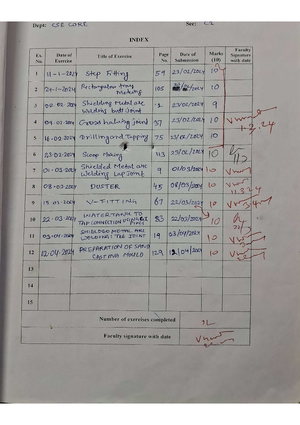 Dept: CSE CORE Sec: C2
INDEX
Ex. No Date of Exercise Title of Exercise Page No Date of Submission Marks (10) Faculty Signature with date
1 11-1-2024 Step Fitting 59 23/02/2024 10
2 Rectangular tray Making 105 10
3 Shielding Metal arc Welding butt Joint 23/02/2024 9
4 Cross halving joint 37 23/02/2024 10 1.3.24
5 16-02-2024 Drilling and Tapping 75 23/02/2024 10
6 23-02-2024 Scoop Making 113 10
7 01-03-2024 Shielded Metal arc Welding Lap Joint 9 01/03/2024 10
8 08-03-2024 DUSTER 45 08/03/2024 10
9 V-FITTING 67 10
10 22-03-2024 WATER TANK TO TAP CONNECTION 83 22/03/2024 10
11 SHIELDED METAL ARC WELDING TEE JOINT 19 10
12 12-04-2024 PREPARATION OF SAND CASTING MOULD 129 12/04/2024 10
13
14
15
Number of exercises completed 12
Faculty signature with date